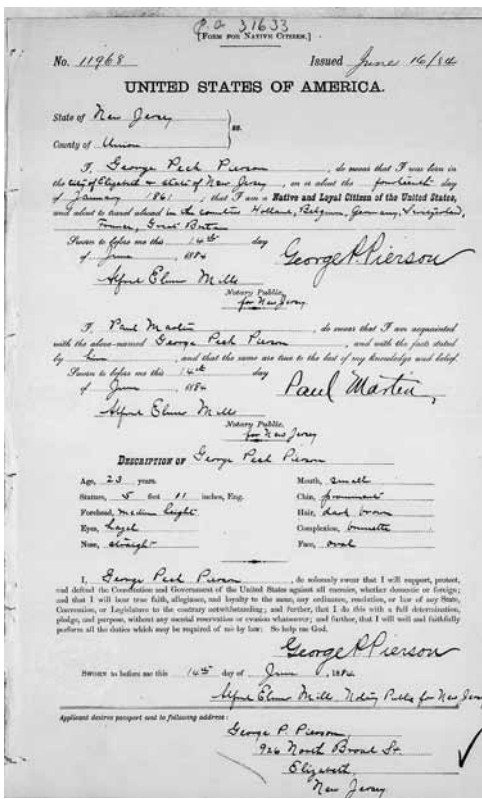 P.a 31633
[FORM FOR NATIVE CITIZEN.]
No. 11968 Issued June 16/84
UNITED STATES OF AMERICA.
State of New Jersey
ss.
County of Union
I, George Peck Pierson, do swear that I was born in
the city of Elizabeth & state of New Jersey, on or about the fourteenth day
of January 1861; that I am a Native and Loyal Citizen of the United States,
and about to travel abroad in the countries Holland, Belgium, Germany, Switzerland,
France, Great Britain
Sworn to before me this 14th day
of June, 1884
George P. Pierson
Alfred Elmer Mills
Notary Public.
for New Jersey
I, Paul Martin, do swear that I am acquainted
with the above-named George Peck Pierson, and with the facts stated
by him, and that the same are true to the best of my knowledge and belief.
Sworn to before me this 14th day
of June, 1884
Paul Martin,
Alfred Elmer Mills
Notary Public.
for New Jersey
DESCRIPTION OF George Peck Pierson
Age, 23 years. Mouth, small
Stature, 5 feet 11 inches, Eng. Chin, prominent
Forehead, medium height Hair, dark brown
Eyes, hazel Complexion, brunette
Nose, straight Face, oval
I, George Peck Pierson, do solemnly swear that I will support, protect,
and defend the Constitution and Government of the United States against all enemies, whether domestic or foreign;
and that I will bear true faith, allegiance, and loyalty to the same, any ordinance, resolution, or law of any State,
Convention, or Legislature to the contrary notwithstanding; and further, that I do this with a full determination,
pledge, and purpose, without any mental reservation or evasion whatsoever; and further, that I will well and faithfully
perform all the duties which may be required of me by law: So help me God.
George P. Pierson
SWORN to before me this 14th day of June, 1884
Alfred Elmer Mills, Notary Public for New Jersey
Applicant desires passport sent to following address:
George P. Pierson,
926 North Broad St.
Elizabeth,
New Jersey